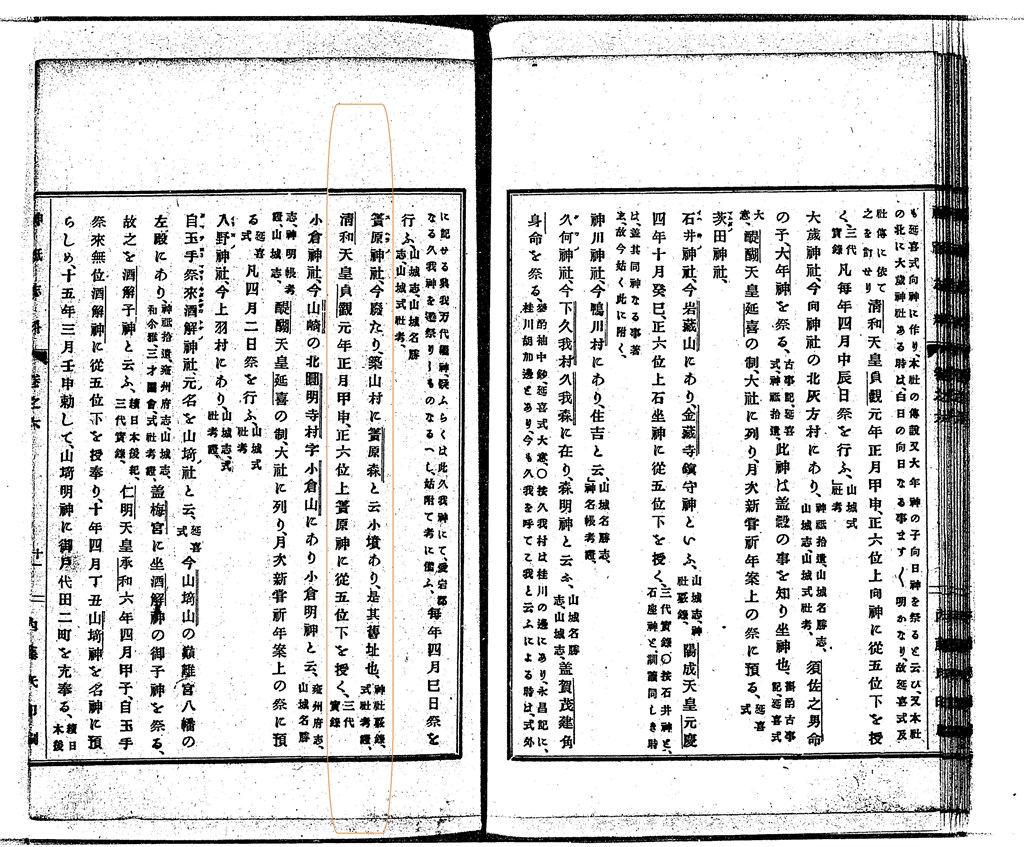 も延喜式向神に作り、本社の傳説又大年神の子向日神を祭ると云ひ、又本社
の北に大歳神社ある時は、白日の向日なる事ます〱明かなり、故延喜式及
社傳に依て
之を訂せり
清和天皇貞觀元年正月甲申、正六位上向神に從五位下を授
く、三代實錄凡每年四月中辰日祭を行ふ、山城式社考
大歳神社、今向神社の北灰方村にあり、神祇拾遺、山城名勝志、山城志、山城式社考、須佐之男命
の子、大年神を祭る、古事記、延喜式、神祇拾遺、此神は盖穀の事を知り坐神也、
大寒、醍醐天皇延喜の制、大社に列り、月次新嘗祈年案上の祭に預る、延喜式
茨田神社、
石井神社、今岩藏山にあり、金藏寺鎭守神といふ、山城志、神社覈錄、陽成天皇元慶
四年十月癸巳、正六位上石坐神に從五位下を授く、三代實錄〇按石井神と、石座神と訓讀同しき時
は盖其同神なる事著
し、故今姑く此に附く、
神川神社、今鴨川村にあり、住吉と云、山城名勝志、神名帳考證、
久何神社、今下久我村久我森に在り、森明神と云ふ、山城名勝志、山城志、盖賀茂建角
身命を祭る、
桂川の邊にあり、永昌記に、
今も久我を呼てこ我と云ふによる時は式外
に記せる與我万代繼神
なる久我神を遙祭り
姑附て考に備ふ、每年四月巳日祭を
行ふ、山城志、山城名勝志、山城式社考、
簀原神社、今廢たり、築山村に簀原森と云小墳あり、是其舊址也、神社覈錄、式社考證、
清和天皇貞觀元年正月甲申、正六位上簀原神に從五位下を授く、三代實錄
小倉神社、今山崎の北圓明寺村字小倉山にあり小倉明神と云、雍州府志、山城名勝
志、神明帳考證、山城志、醍醐天皇延喜の制、大社に列り、月次新嘗祈年案上の祭に預
る、延喜式凡四月二日祭を行ふ、山城式社考
入野神社、今上羽村にあり、山城志、式社考證、
自玉手祭來酒解神社、元名を山埼社と云、延喜式今山埼山の巓離宮八幡の
左殿にあり、神祇拾遺、雍州府志、山城志、和合雅三才圖會、式社考證、盖梅宮に坐酒解神の御子神を祭る、
故之を酒解子神と云ふ、續日本後紀、三代實錄、仁明天皇承和六年四月甲子、自玉手
祭來無位酒解神に從五位下を授奉り、十年四月丁丑山埼神を名神に預
らしめ、十五年三月壬申勅して、山埼明神に御戸代田二町を充奉る、續日本後